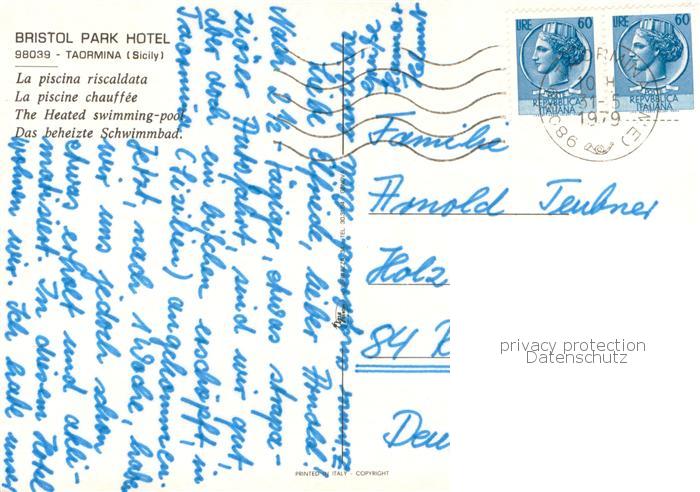 BRISTOL PARK HOTEL
98039 - TAORMINA (Sicily)
La piscina riscaldata
La piscine chauffée
The Heated swimming-pool
Das beheizte Schwimmbad.
LIRE 60
REPVBBLICA
ITALIANA
LIRE 60
REPVBBLICA
ITALIANA
31-5
1979
Familie
Arnold Teubner
Holz
84 R
Deu
privacy protection
Datenschutz
PRINTED IN ITALY - COPYRIGHT
Liebe Elfriede, lieber Arnold!
Nach 2 1/2 tägiger, etwas strapa-
ziöser Busfahrt sind wir gut,
aber doch ein bißchen erschöpft, in
Taormina (Sizilien) angekommen.
Jetzt, nach 1 Woche, haben
wir uns jedoch schon
etwas erholt und akkli-
matisiert. In diesem Hotel
wohnen wir. Ich habe mir